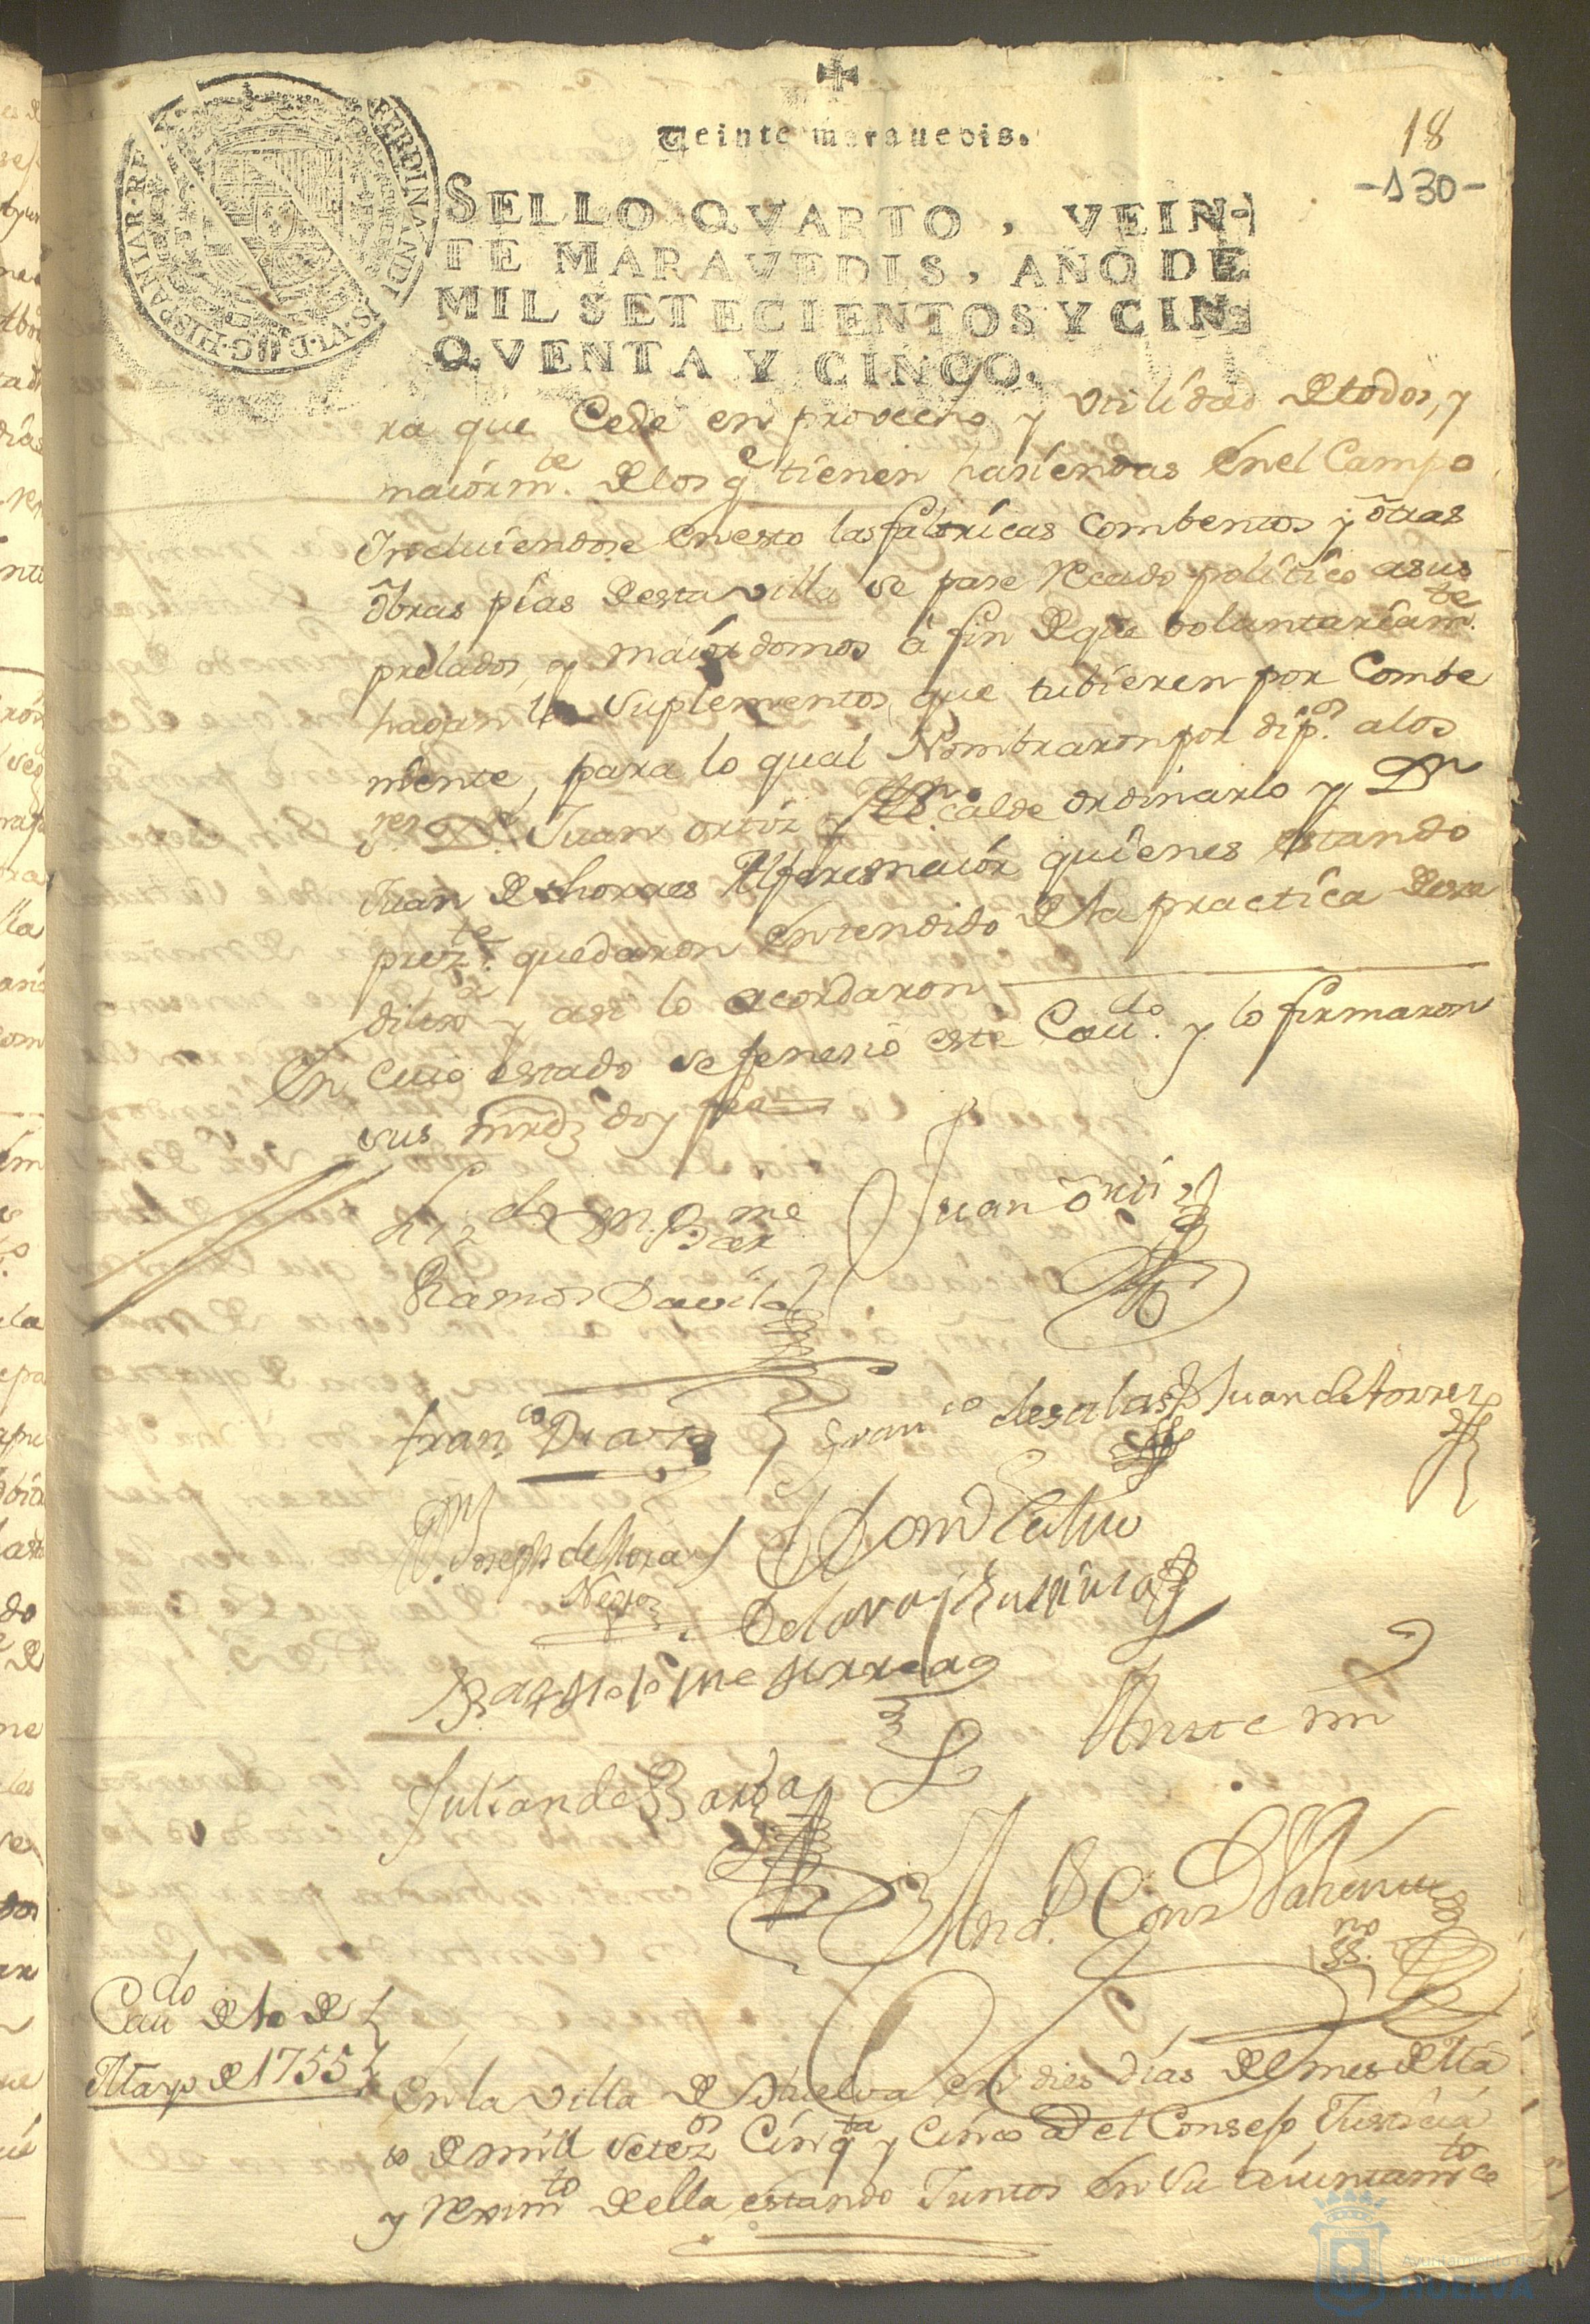 Veinte maravedis.
18
-130-
FERDINANDUS·VI·D·G·HISPANIAR·REX
SELLO QVARTO, VEIN-
TE MARAVEDIS, AÑO DE
MIL SETECIENTOS Y CIN-
QVENTA Y CINCO.
ra que Cede en provecho y Vtilidad de todos, y
maiormte. de los qe tienen hasiendas en el Campo
Incluiendose en esto las fabricas Combentos y otras
obras pias de esta villa se pase recado politico a sus
prelados, y maiordomos à fin de que voluntariamte.
hagan los suplementos, que tubieren por Combe
niente, para lo qual Nombraron por dipos. a los
res Dn. Juan ortiz Alcalde ordinario y Dn
Juan de thorres Alferes maior quienes estando
preztes. quedaron entendido de la practica de esta
dilixa y asi lo acordaron
En cuio estado se fenesio este Cavdo. y lo firmaron
sus mrdz doy fee
Lizdo Dn. Barme
Juan ortiz
Ramos Davila
Franco Diaz
Franco de salas
Juan de torres
Dn Joseph de Mora
Negro
Bartolome Herrera
Ante mi
Julian de Borda
no
ss.
Cavdo de 10 de
Mayo de 1755
En la villa de Huelva en dies dias del mes de Ma
io de mill setezos Cinqta y Cinco el Consejo Justicia
y reximto de ella estando Juntos en su aiuntamto
Ayuntamiento de
HUELVA